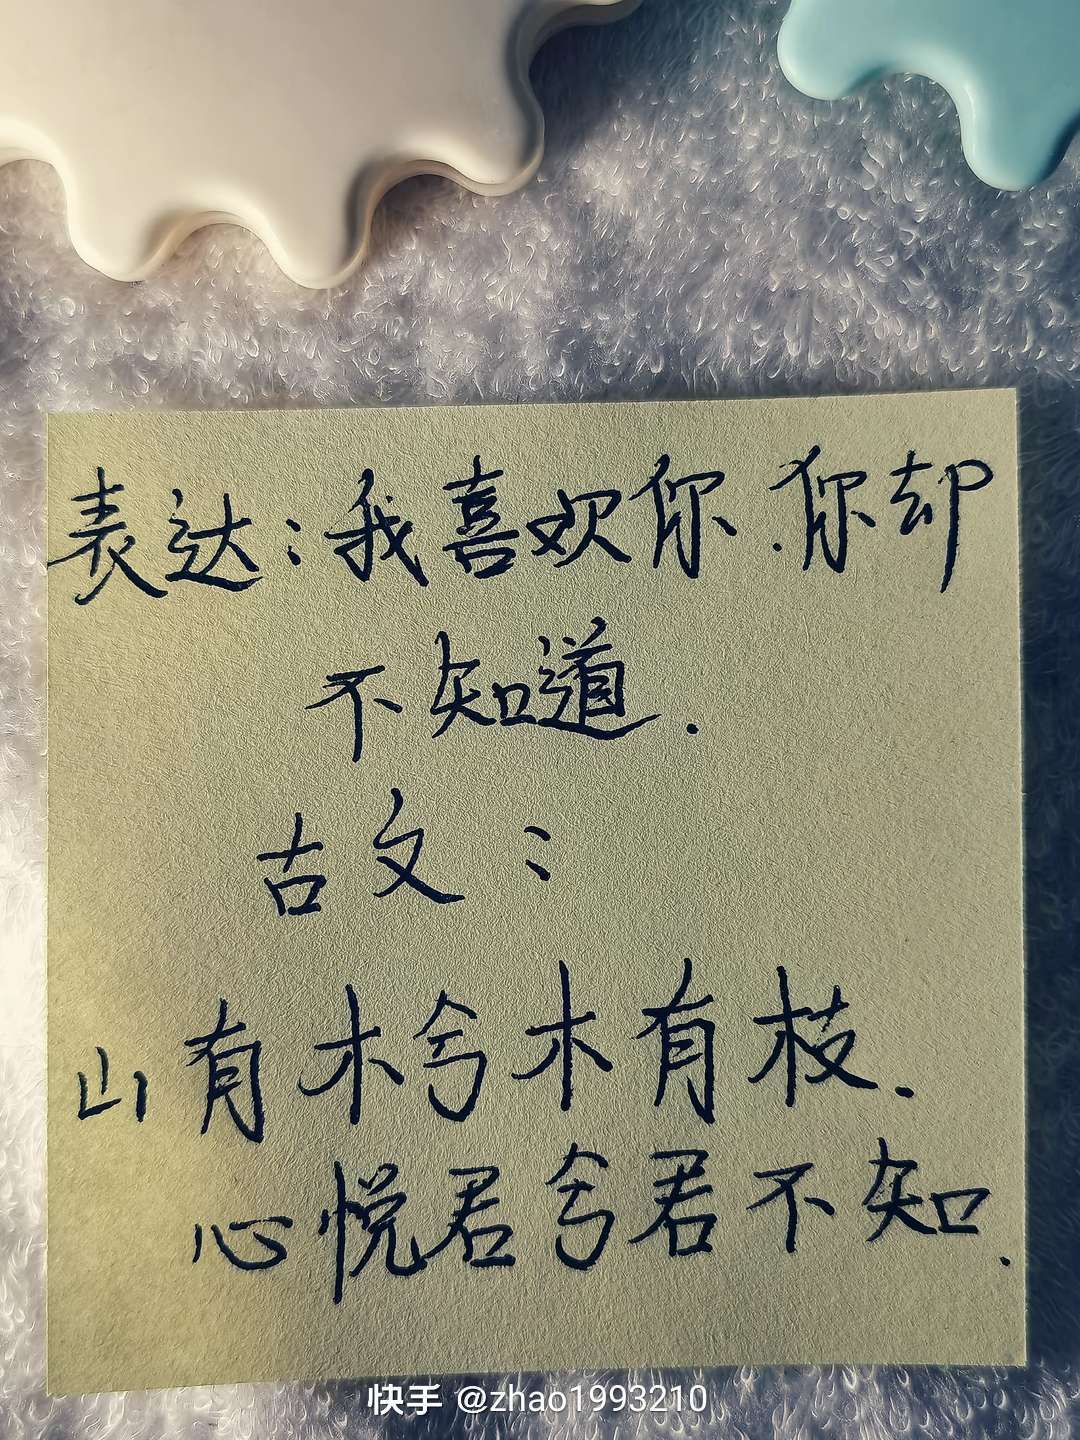 表达:我喜欢你.你却
不知道.
古文:
山有木兮木有枝.
心悦君兮君不知.
快手 @zhao1993210